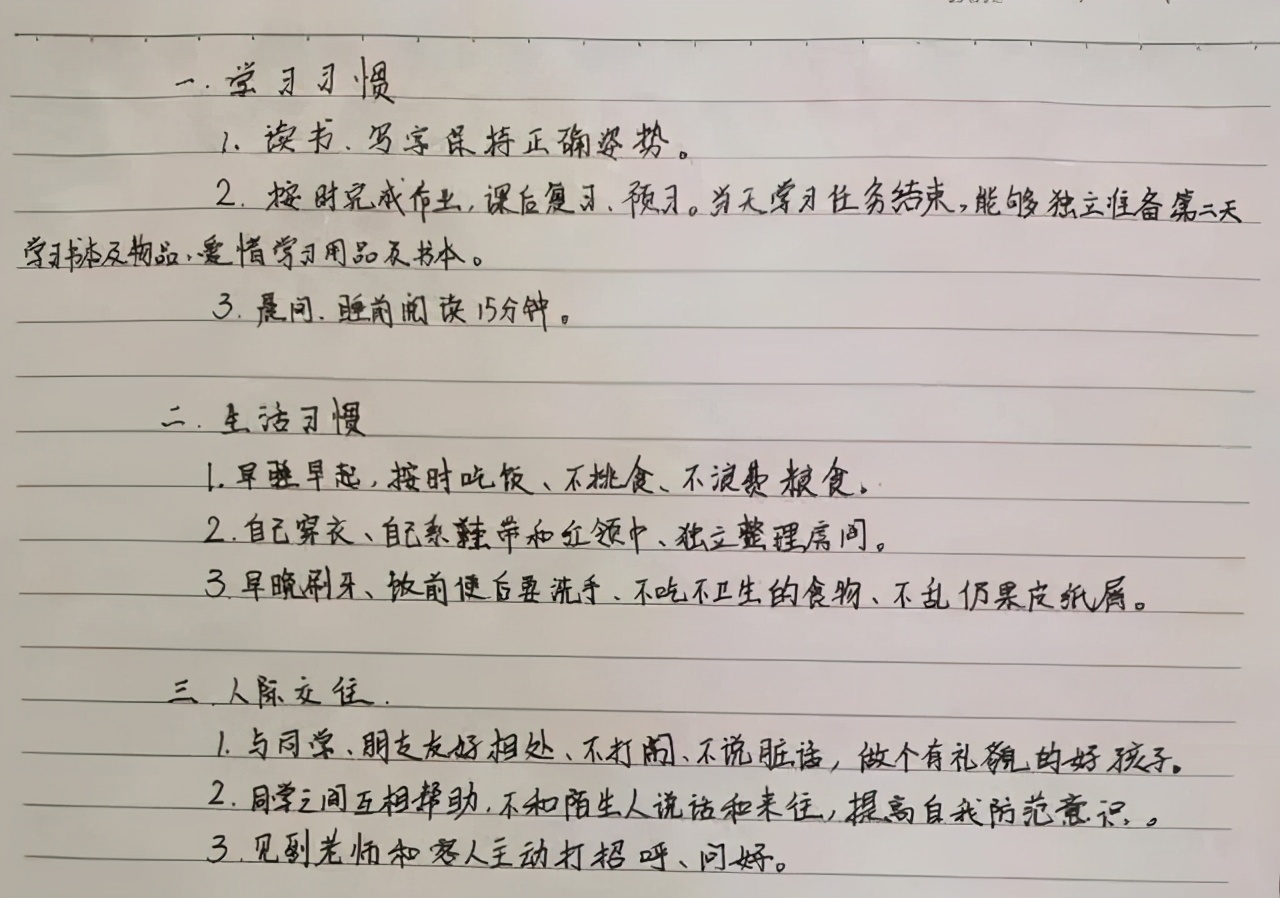 一.学习习惯
1.读书、写字保持正确姿势。
2.按时完成作业,课后复习、预习。当天学习任务结束,能够独立准备第二天
学习书本及物品、爱惜学习用品及书本。
3.晨间、睡前阅读15分钟。
二.生活习惯
1.早睡早起,按时吃饭、不挑食、不浪费粮食。
2.自己穿衣、自己系鞋带和红领巾、独立整理房间。
3.早晚刷牙、饭前便后要洗手、不吃不卫生的食物、不乱仍果皮纸屑。
三.人际交往.
1.与同学、朋友友好相处、不打闹、不说脏话,做个有礼貌的好孩子。
2.同学之间互相帮助,不和陌生人说话和来往,提高自我防范意识。
3.见到老师和客人主动打招呼、问好。